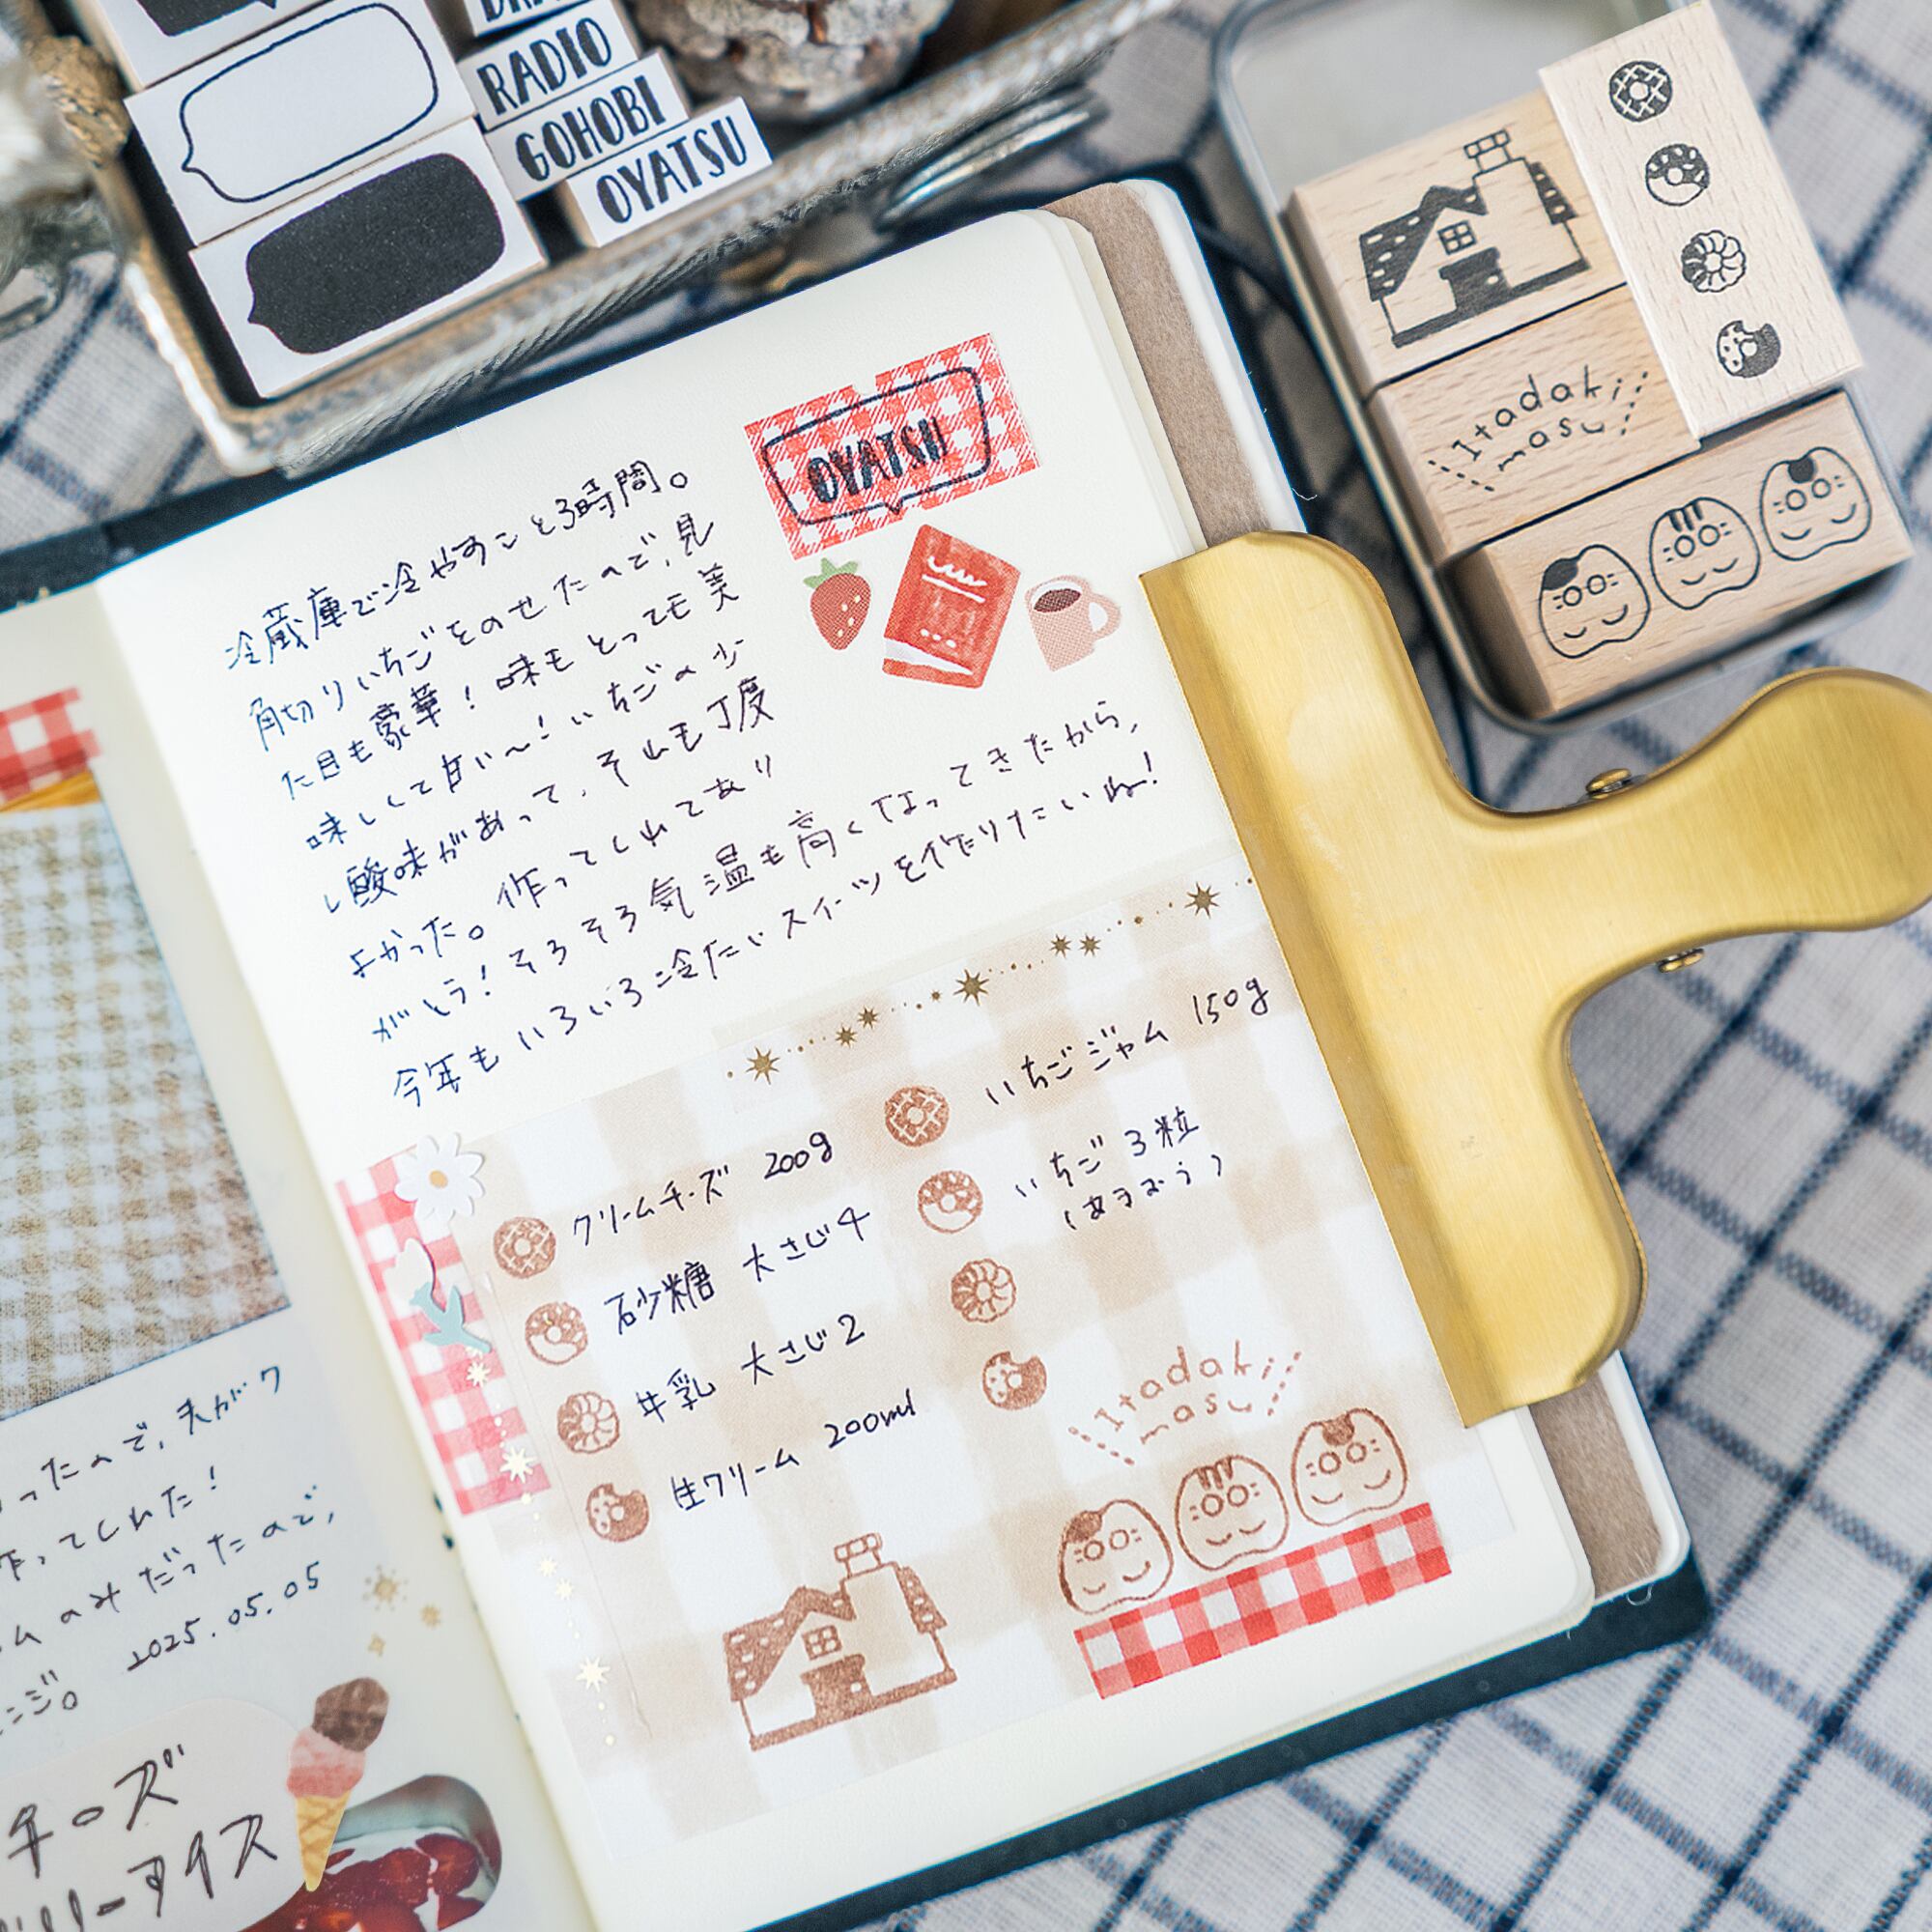 RADIO
GOHOBI
OYATSU
Itadaki
masu
OYATSU
冷蔵庫で冷やすこと3時間。
角切りいちごをのせたので、見
た目も豪華！味もとっても美
味しくて甘い〜！いちごの少
し酸味があって、それも丁度
よかった。作ってくれてあり
がとう！そろそろ気温も高くなってきたから、
今年もいろいろ冷たいスイーツを作りたいね！
クリームチーズ 200g
砂糖 大さじ4
牛乳 大さじ2
生クリーム 200ml
いちごジャム 150g
いちご 3粒
Itadaki
masu
ったので、夫が
作ってくれた！
ムのみだったので、
ンジ。 2025.05.05
チーズ
リーアイス